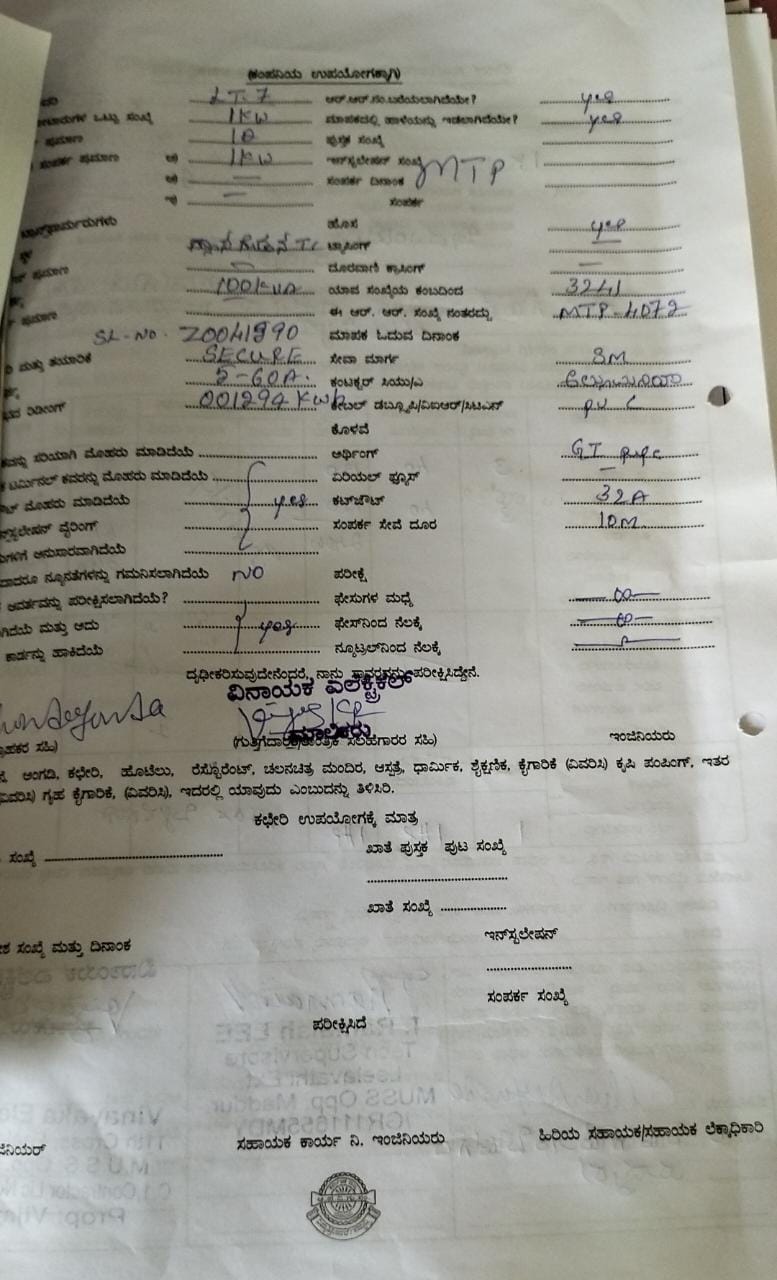 (ಕಂಪನಿಯ ಉಪಯೋಗಕ್ಕಾಗಿ)
LT-7 ಆರ್.ಆರ್.ನಂ.ಬರೆಯಲಾಗಿದೆಯೇ? yes
ಒಟ್ಟು ಸಂಖ್ಯೆ 1KW ಮಾಪಕದಲ್ಲಿ ಹಾಳೆಯನ್ನು ಇಡಲಾಗಿದೆಯೇ? yes
ಪ್ರಮಾಣ ಪುಸ್ತಕ ಸಂಖ್ಯೆ
ಸಂಪರ್ಕ ಪ್ರಮಾಣ 1KW ಇನ್‌ಸ್ಟಲೇಷನ್ ಸಂಖ್ಯೆ MTP
ಸಂಪರ್ಕ ದಿನಾಂಕ
ಸಂಪರ್ಕ
ಹೊಸ yes
ಟ್ಯಾಪಿಂಗ್
ದೂರವಾಣಿ ಕ್ರಾಸಿಂಗ್
ಪ್ರಮಾಣ 100KVA ಯಾವ ಸಂಖ್ಯೆಯ ಕಂಬದಿಂದ 3241
ಪ್ರಮಾಣ ಈ ಆರ್. ಆರ್. ಸಂಖ್ಯೆ ನಂತರದ್ದು MTP-4072
SL-No. Z0041990 ಮಾಪಕ ಓದುವ ದಿನಾಂಕ
ಮತ್ತು ತಯಾರಿಕೆ SECURE ಸೇವಾ ಮಾರ್ಗ SM
5-60A. ಕಂಡಕ್ಟರ್ ಸಿಯು/ಎ
ರಿಡಿಂಗ್ 001294 KWh ಕೇಬಲ್ ಡಬ್ಲ್ಯೂಪಿ/ವಿಐಆರ್/ಸಿಟಿಎಸ್ PVC
ಕೊಳವೆ
ಸರಿಯಾಗಿ ಮೊಹರು ಮಾಡಿದೆಯೆ ಅರ್ಥಿಂಗ್ GI pipe
ಟರ್ಮಿನಲ್ ಕವರನ್ನು ಮೊಹರು ಮಾಡಿದೆಯೆ ಏರಿಯಲ್ ಫ್ಯೂಸ್
ಮೊಹರು ಮಾಡಿದೆಯೆ yes ಕಟ್‌ಔಟ್ 32A
ವೈರಿಂಗ್ ಸಂಪರ್ಕ ಸೇವೆ ದೂರ 10M
ಅನುಸಾರವಾಗಿದೆಯೆ
ನ್ಯೂನತೆಗಳನ್ನು ಗಮನಿಸಲಾಗಿದೆಯೆ NO ಪರೀಕ್ಷೆ
ಪರೀಕ್ಷಿಸಲಾಗಿದೆಯೆ? ಫೇಸುಗಳ ಮಧ್ಯೆ
ಮತ್ತು ಅದು yes ಫೇಸ್‌ನಿಂದ ನೆಲಕ್ಕೆ
ಕಾರ್ಡನ್ನು ಹಾಕಿದೆಯೆ ನ್ಯೂಟ್ರಲ್‌ನಿಂದ ನೆಲಕ್ಕೆ
ದೃಢೀಕರಿಸುವುದೇನೆಂದರೆ, ನಾನು ಸ್ಥಾವರವನ್ನು ಪರೀಕ್ಷಿಸಿದ್ದೇನೆ.
ವಿನಾಯಕ ಎಲೆಕ್ಟ್ರಿಕಲ್
ಮಾಲೀಕರು
ಸಹಿ) (ಗುತ್ತಿಗೆದಾರರ/ತಾಂತ್ರಿಕ ಸಲಹೆಗಾರರ ಸಹಿ) ಇಂಜಿನಿಯರು
ಅಂಗಡಿ, ಕಛೇರಿ, ಹೊಟೆಲು, ರೆಸ್ಟೋರೆಂಟ್, ಚಲನಚಿತ್ರ ಮಂದಿರ, ಆಸ್ಪತ್ರೆ, ಧಾರ್ಮಿಕ, ಶೈಕ್ಷಣಿಕ, ಕೈಗಾರಿಕೆ (ವಿವರಿಸಿ) ಕೃಷಿ ಪಂಪಿಂಗ್, ಇತರ
(ವಿವರಿಸಿ) ಗೃಹ ಕೈಗಾರಿಕೆ, (ವಿವರಿಸಿ), ಇದರಲ್ಲಿ ಯಾವುದು ಎಂಬುದನ್ನು ತಿಳಿಸಿರಿ.
ಕಛೇರಿ ಉಪಯೋಗಕ್ಕೆ ಮಾತ್ರ
ಸಂಖ್ಯೆ ಖಾತೆ ಪುಸ್ತಕ ಪುಟ ಸಂಖ್ಯೆ
ಖಾತೆ ಸಂಖ್ಯೆ
ಸಂಖ್ಯೆ ಮತ್ತು ದಿನಾಂಕ ಇನ್‌ಸ್ಟಲೇಷನ್
ಸಂಪರ್ಕ ಸಂಖ್ಯೆ
ಪರೀಕ್ಷಿಸಿದೆ
ಸಹಾಯಕ ಕಾರ್ಯ ನಿ. ಇಂಜಿನಿಯರು ಹಿರಿಯ ಸಹಾಯಕ/ಸಹಾಯಕ ಲೆಕ್ಕಾಧಿಕಾರಿ